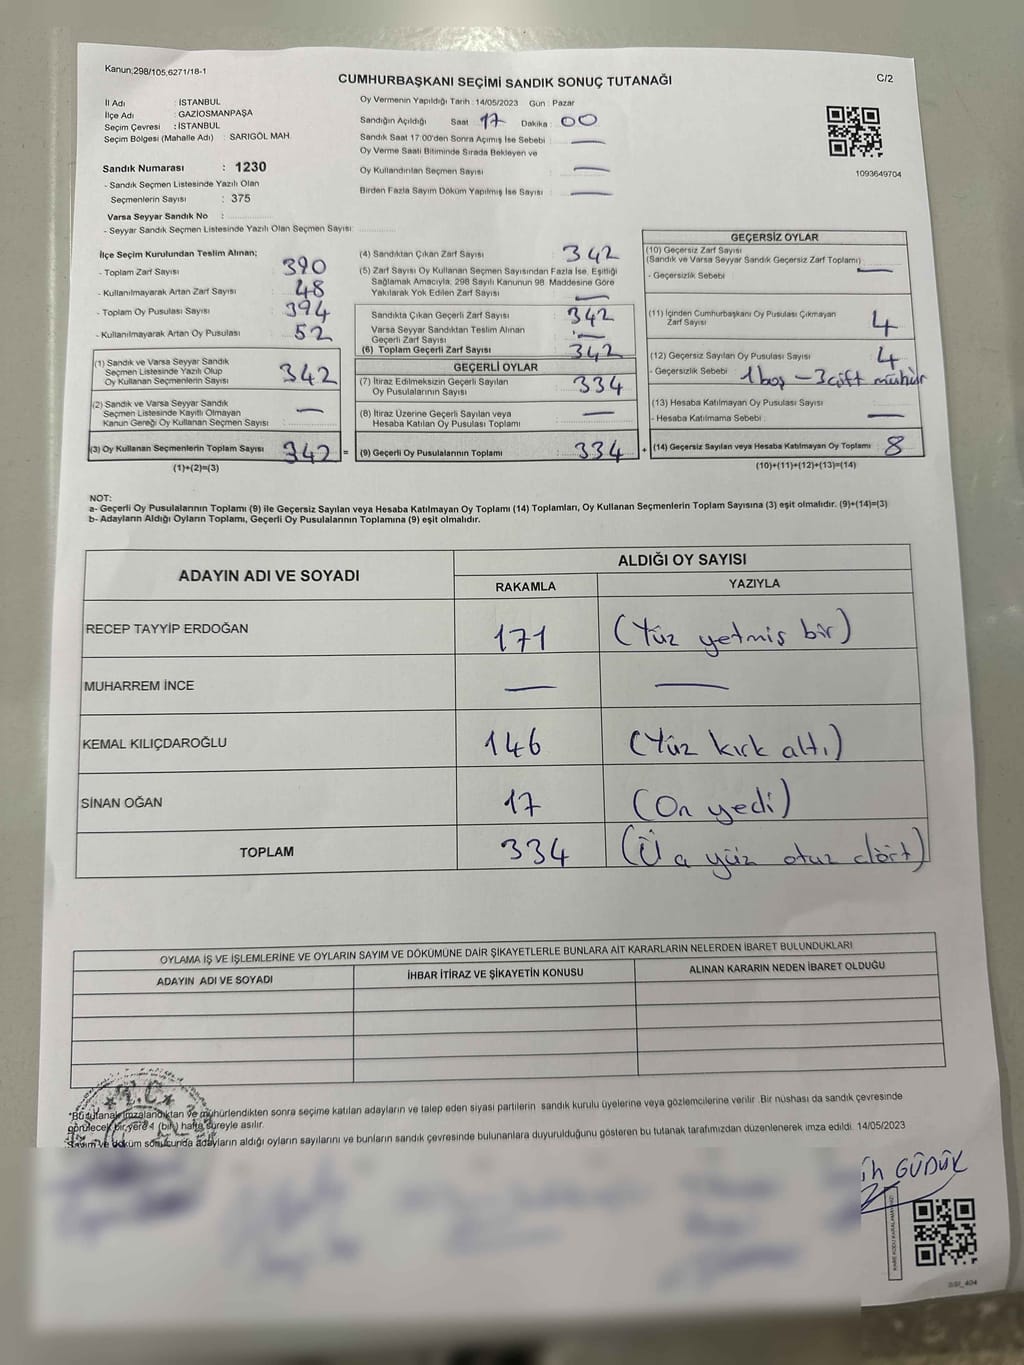 Kanun;298/105,6271/18-1
CUMHURBAŞKANI SEÇİMİ SANDIK SONUÇ TUTANAĞI
C/2
İl Adı : İSTANBUL
İlçe Adı : GAZİOSMANPAŞA
Seçim Çevresi : İSTANBUL
Seçim Bölgesi (Mahalle Adı) : SARIGÖL MAH.
Sandık Numarası : 1230
- Sandık Seçmen Listesinde Yazılı Olan
Seçmenlerin Sayısı : 375
Varsa Seyyar Sandık No :
- Seyyar Sandık Seçmen Listesinde Yazılı Olan Seçmen Sayısı:
Oy Vermenin Yapıldığı Tarih : 14/05/2023 Gün : Pazar
Sandığın Açıldığı Saat 17 Dakika : 00
Sandık Saat 17:00'den Sonra Açımış İse Sebebi : —
Oy Verme Saati Bitiminde Sırada Bekleyen ve
Oy Kullandırılan Seçmen Sayısı : —
Birden Fazla Sayım Döküm Yapılmış İse Sayısı : —
1093649704
İlçe Seçim Kurulundan Teslim Alınan;
- Toplam Zarf Sayısı : 390
- Kullanılmayarak Artan Zarf Sayısı : 48
- Toplam Oy Pusulası Sayısı : 394
- Kullanılmayarak Artan Oy Pusulası : 52
(1) Sandık ve Varsa Seyyar Sandık
Seçmen Listesinde Yazılı Olup
Oy Kullanan Seçmenlerin Sayısı : 342
(2) Sandık ve Varsa Seyyar Sandık
Seçmen Listesinde Kayıtlı Olmayan
Kanun Gereği Oy Kullanan Seçmen Sayısı : —
(3) Oy Kullanan Seçmenlerin Toplam Sayısı : 342 =
(1)+(2)=(3)
(4) Sandıktan Çıkan Zarf Sayısı : 342
(5) Zarf Sayısı Oy Kullanan Seçmen Sayısından Fazla İse, Eşitliği
Sağlamak Amacıyla, 298 Sayılı Kanunun 98. Maddesine Göre
Yakılarak Yok Edilen Zarf Sayısı : —
Sandıkta Çıkan Geçerli Zarf Sayısı : 342
Varsa Seyyar Sandıktan Teslim Alınan
Geçerli Zarf Sayısı : —
(6) Toplam Geçerli Zarf Sayısı : 342
GEÇERLİ OYLAR
(7) İtiraz Edilmeksizin Geçerli Sayılan
Oy Pusulalarının Sayısı : 334
(8) İtiraz Üzerine Geçerli Sayılan veya
Hesaba Katılan Oy Pusulası Toplamı : —
(9) Geçerli Oy Pusulalarının Toplamı : 334 +
GEÇERSİZ OYLAR
(10) Geçersiz Zarf Sayısı
(Sandık ve Varsa Seyyar Sandık Geçersiz Zarf Toplamı) : —
- Geçersizlik Sebebi :
(11) İçinden Cumhurbaşkanı Oy Pusulası Çıkmayan
Zarf Sayısı : 4
(12) Geçersiz Sayılan Oy Pusulası Sayısı : 4
- Geçersizlik Sebebi : 1 boş – 3 çift mühür
(13) Hesaba Katılmayan Oy Pusulası Sayısı :
- Hesaba Katılmama Sebebi : —
(14) Geçersiz Sayılan veya Hesaba Katılmayan Oy Toplamı : 8
(10)+(11)+(12)+(13)=(14)
NOT:
a- Geçerli Oy Pusulalarının Toplamı (9) ile Geçersiz Sayılan veya Hesaba Katılmayan Oy Toplamı (14) Toplamları, Oy Kullanan Seçmenlerin Toplam Sayısına (3) eşit olmalıdır. (9)+(14)=(3)
b- Adayların Aldığı Oyların Toplamı, Geçerli Oy Pusulalarının Toplamına (9) eşit olmalıdır.
ADAYIN ADI VE SOYADI
ALDIĞI OY SAYISI
RAKAMLA YAZIYLA
RECEP TAYYİP ERDOĞAN 171 (Yüz yetmiş bir)
MUHARREM İNCE — —
KEMAL KILIÇDAROĞLU 146 (Yüz kırk altı)
SİNAN OĞAN 17 (On yedi)
TOPLAM 334 (Üç yüz otuz dört)
OYLAMA İŞ VE İŞLEMLERİNE VE OYLARIN SAYIM VE DÖKÜMÜNE DAİR ŞİKAYETLERLE BUNLARA AİT KARARLARIN NELERDEN İBARET BULUNDUKLARI
ADAYIN ADI VE SOYADI İHBAR İTİRAZ VE ŞİKAYETİN KONUSU ALINAN KARARIN NEDEN İBARET OLDUĞU
T.C.
*Bu tutanak imzalandıktan ve mühürlendikten sonra seçime katılan adayların ve talep eden siyasi partilerin sandık kurulu üyelerine veya gözlemcilerine verilir. Bir nüshası da sandık çevresinde
görülecek bir yere 1 (bir) hafta süreyle asılır.
Sayım ve döküm sonucunda adayların aldığı oyların sayılarını ve bunların sandık çevresinde bulunanlara duyurulduğunu gösteren bu tutanak tarafımızdan düzenlenerek imza edildi. 14/05/2023
GÜDÜK
KARE KODU KARALAMAYINIZ!
SSI_404